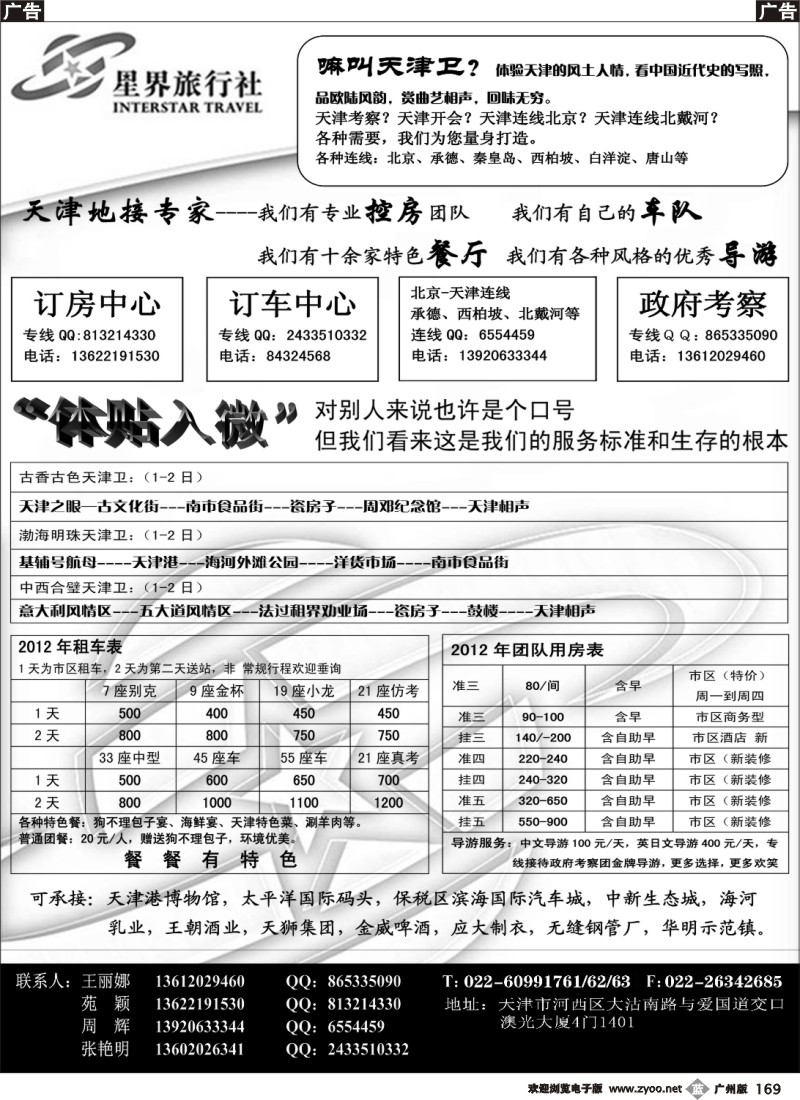 广告
广告
星界旅行社
INTERSTAR TRAVEL
嘛叫天津卫？ 体验天津的风土人情，看中国近代史的写照，
品欧陆风韵，赏曲艺相声，回味无穷。
天津考察？天津开会？天津连线北京？天津连线北戴河？
各种需要，我们为您量身打造。
各种连线：北京、承德、秦皇岛、西柏坡、白洋淀、唐山等
天津地接专家----我们有专业控房团队 我们有自己的车队
我们有十余家特色餐厅 我们有各种风格的优秀导游
订房中心
专线QQ:813214330
电话：13622191530
订车中心
专线QQ：2433510332
电话：84324568
北京-天津连线
承德、西柏坡、北戴河等
连线QQ：6554459
电话：13920633344
政府考察
专线ＱＱ：865335090
电话：13612029460
“体贴入微”
对别人来说也许是个口号
但我们看来这是我们的服务标准和生存的根本
古香古色天津卫：（1-2 日）
天津之眼—古文化街---南市食品街---瓷房子---周邓纪念馆---天津相声
渤海明珠天津卫：（1-2 日）
基辅号航母----天津港---海河外滩公园----洋货市场----南市食品街
中西合璧天津卫：（1-2 日）
意大利风情区---五大道风情区---法过租界劝业场---瓷房子---鼓楼----天津相声
2012 年租车表
1 天为市区租车，2 天为第二天送站，非 常规行程欢迎垂询
7 座别克 9 座金杯 19 座小龙 21 座仿考
1 天 500 400 450 450
2 天 800 800 750 750
33 座中型 45 座车 55 座车 21 座真考
1 天 500 600 650 700
2 天 800 1000 1100 1200
各种特色餐：狗不理包子宴、海鲜宴、天津特色菜、涮羊肉等。
普通团餐：20 元/人，赠送狗不理包子，环境优美。
餐 餐 有 特 色
2012 年团队用房表
准三 80/间 含早 市区（特价）
周一到周四
准三 90-100 含早 市区商务型
挂三 140/-200 含自助早 市区酒店 新
准四 220-240 含自助早 市区（新装修
挂四 240-320 含自助早 市区（新装修
准五 320-650 含自助早 市区（新装修
挂五 550-900 含自助早 市区（新装修
导游服务：中文导游 100 元/天，英日文导游 400 元/天，专
线接待政府考察团金牌导游，更多选择，更多欢笑
可承接：天津港博物馆，太平洋国际码头，保税区滨海国际汽车城，中新生态城，海河
乳业，王朝酒业，天狮集团，金威啤酒，应大制衣，无缝钢管厂，华明示范镇。
联系人：王丽娜 13612029460 QQ：865335090
苑 颖 13622191530 QQ：813214330
周 辉 13920633344 QQ：6554459
张艳明 13602026341 QQ：2433510332
T：022-60991761/62/63 F：022-26342685
地址：天津市河西区大沽南路与爱国道交口
澳光大厦4门1401
欢迎浏览电子版 www.zyoo.net 蓝 广州版 169